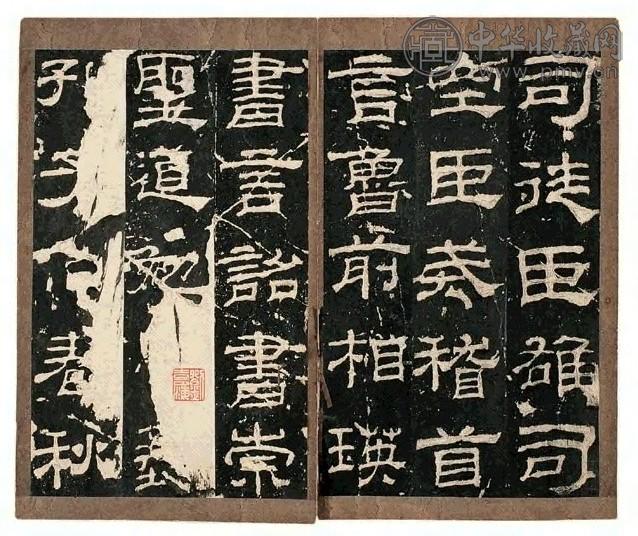 司徒臣雄司
空臣戒稽首
言魯前相瑛
書言詔書崇
聖道勉藝
孔子作春秋
中华收藏网